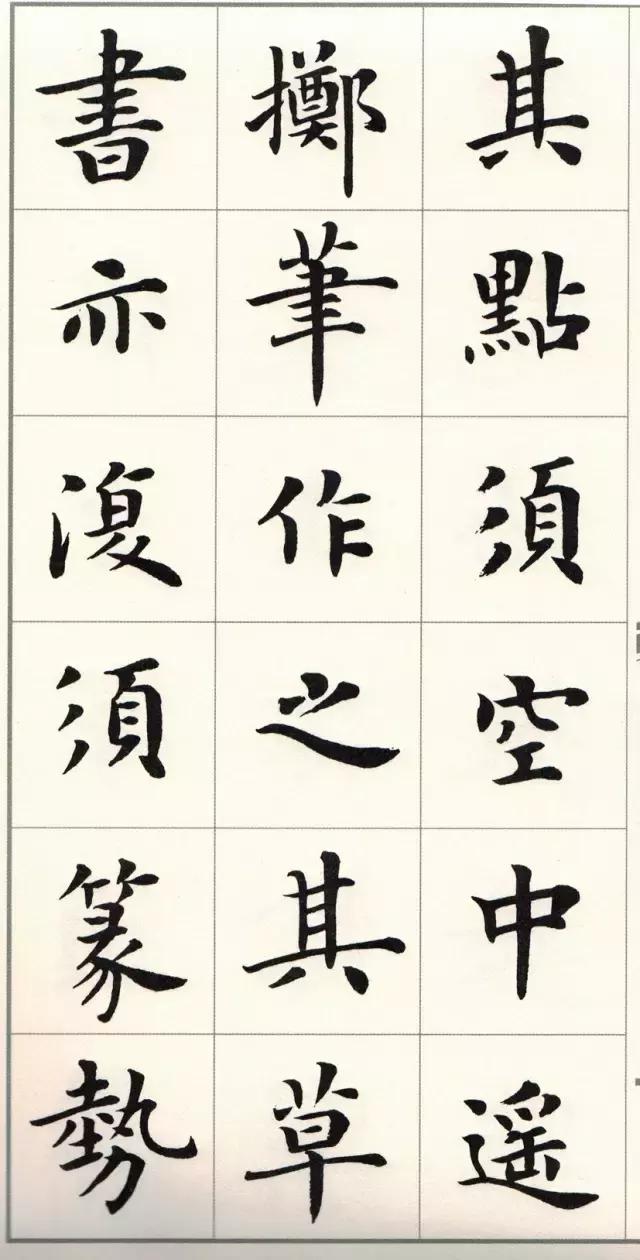 其點須空中遥
擲筆作之其草
書亦復須篆勢